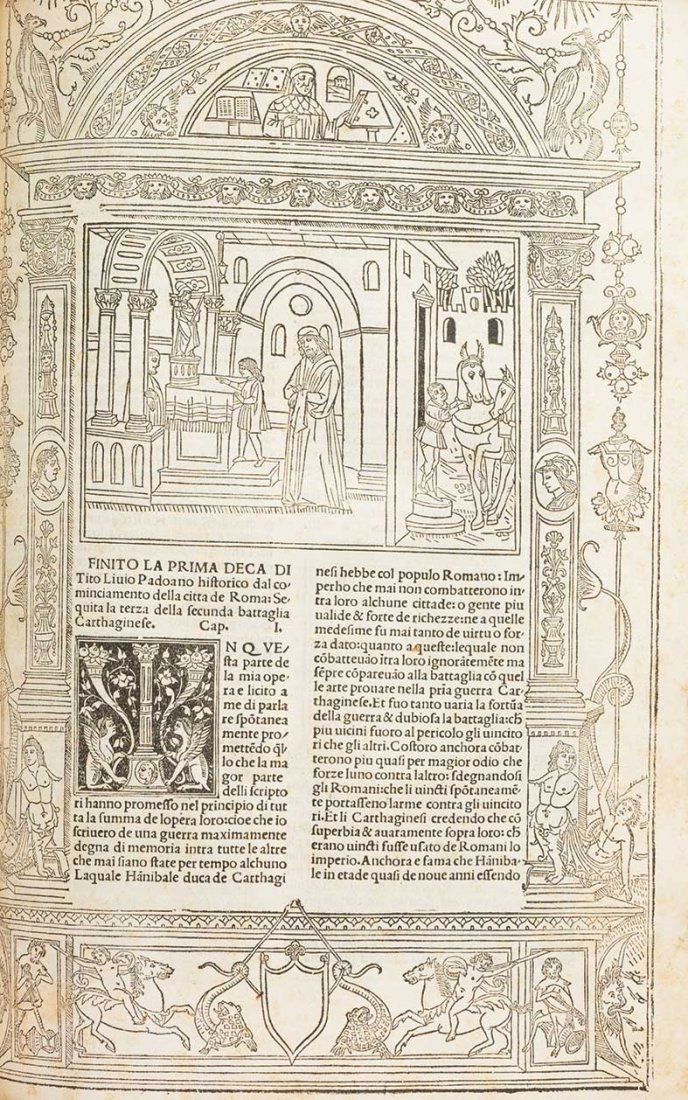 FINITO LA PRIMA DECA DI
Tito Liuio Padoano historico dal co⸗
minciamento della citta de Roma: Se⸗
quita la terza della secunda battaglia
Carthaginese. Cap. I.
N QVE⸗
sta parte de
la mia ope⸗
ra e licito a
me di parla
re spōtanea
mente pro⸗
mettēdo ql̄
lo che la ma
gor parte
delli scripto
ri hanno promesso nel principio di tut
ta la summa de lopera loro: cioe che io
scriuero de una guerra maximamente
degna di memoria intra tutte le altre
che mai siano state per tempo alchuno
Laquale Hānibale duca de Carthagi
nesi hebbe col populo Romano: Im⸗
perho che mai non combatterono in⸗
tra loro alchune cittade: o gente piu
ualide & forte de richezze: ne a quelle
medesime fu mai tanto de uirtu o for⸗
za dato: quanto a queste: lequale non
cōbatteuāo ītra loro ignorātemēte ma
sēpre cōpareuāo alla battaglia cō quel
le arte prouate nella prīa guerra Car⸗
thaginese. Et fuo tanto uaria la fortūa
della guerra & dubiosa la battaglia: ch̄
piu uicini fuoro al pericolo gli uincito
ri che gli altri. Costoro anchora cōbat⸗
terono piu quasi per magior odio che
forze luno contra laltro: sdegnandosi
gli Romani: che li uincti spōtaneamē⸗
te portasseno larme contra gli uincito
ri. Et li Carthaginesi credendo che cō
superbia & auaramente sopra loro: ch̄
erano uincti fusse usato de Romani lo
imperio. Anchora e fama che Hāniba⸗
le in etade quasi de noue anni essendo